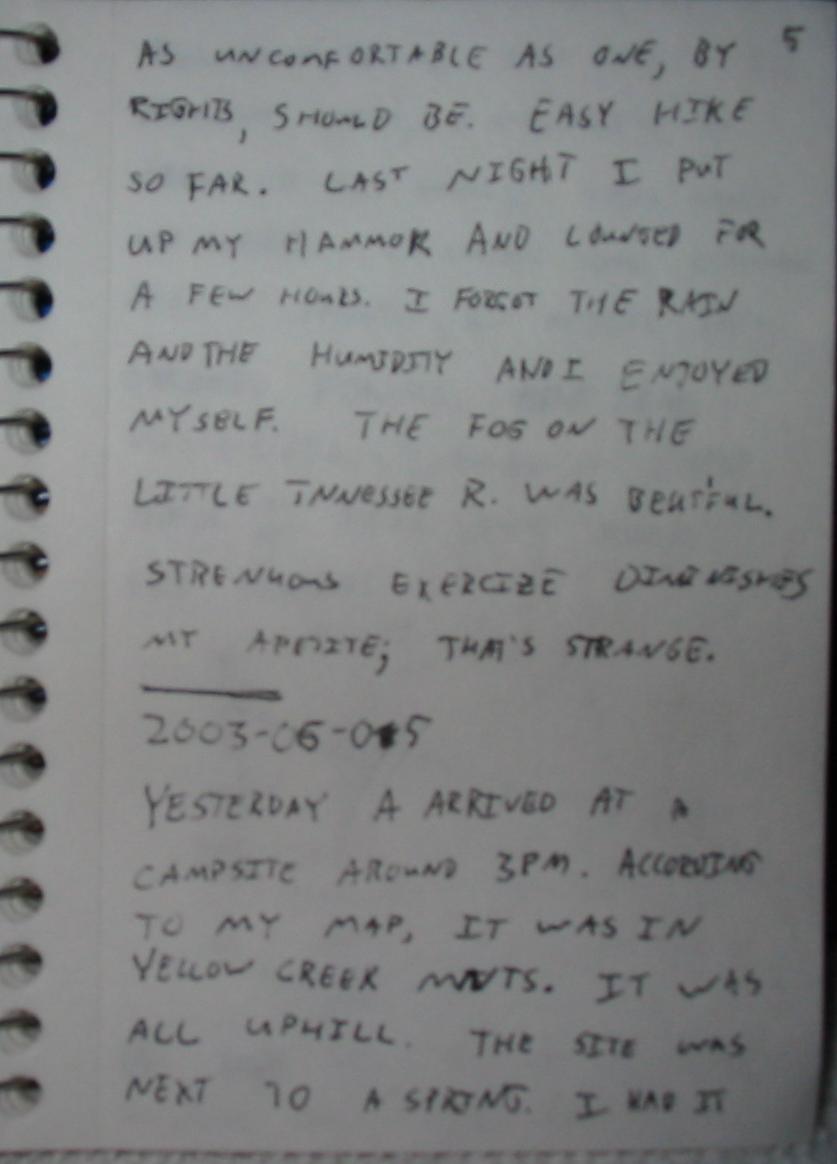 5
AS UNCOMFORTABLE AS ONE, BY
RIGHTS, SHOULD BE. EASY HIKE
SO FAR. LAST NIGHT I PUT
UP MY HAMMOK AND LOUNGED FOR
A FEW HOURS. I FORGOT THE RAIN
AND THE HUMIDITY AND I ENJOYED
MYSELF. THE FOG ON THE
LITTLE TNNESSEE R. WAS BEUTIFUL.
STRENUOUS EXERCIZE DIMINISHES
MY APETITE; THAT'S STRANGE.
2003-06-05
YESTERDAY A ARRIVED AT A
CAMPSITE AROUND 3PM. ACCORDING
TO MY MAP, IT WAS IN
YELLOW CREEK MNTS. IT WAS
ALL UPHILL. THE SITE WAS
NEXT TO A SPRING. I HAD IT